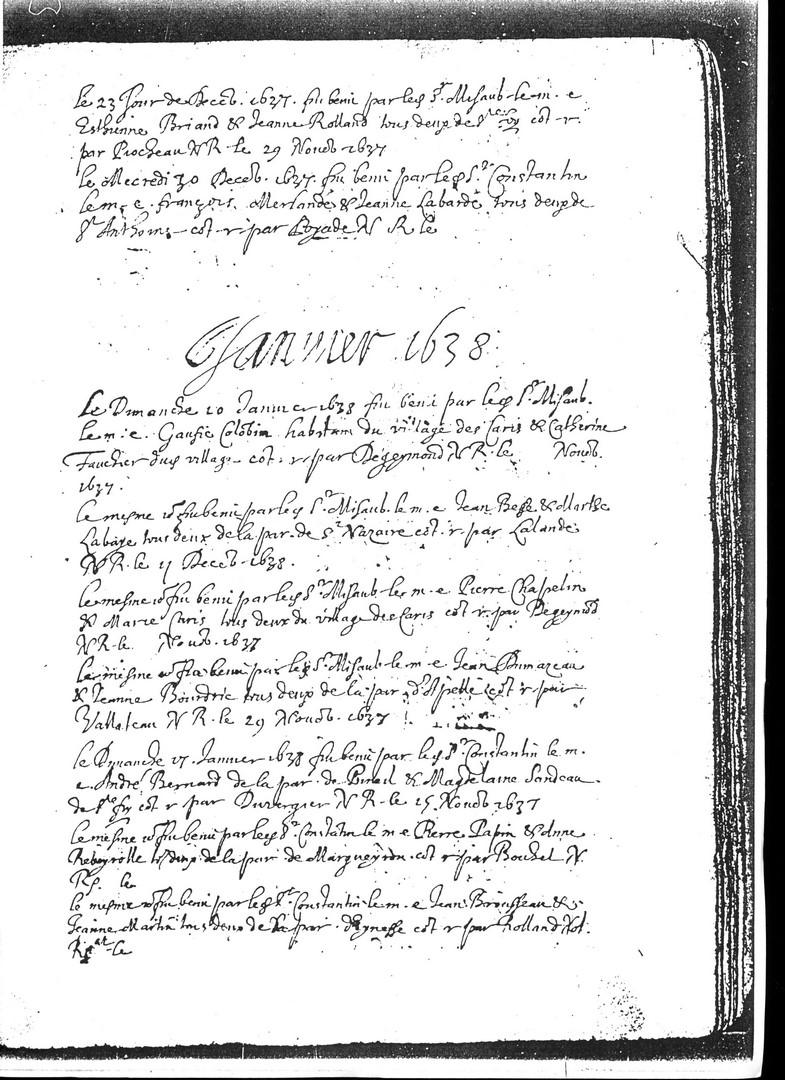 le 23 Jour de Deceb. 1637. fut beni par led Sr. Misaub. le m. e
Esthienne Briand & Jeanne Rolland tous deux de Ste foy cot. r.
par Piocheau N R. le 29 Novob 1637
le Mecredi 30 Deceb. 1637. fut beni par led Sr. Constantin
le m. e. françois Merlande & Jeanne Labarde tous deux de
St Anthoine cot. r par Loyade N R le
Januier 1638
Le Dimanche 10 Januier 1638 fut beni par led Sr Misaub.
le m: e. Colobin habitant du village des Caris & Catherine
Fauchier dud village cot: r par Degeymond N R. le Novob.
1637.
le mesme io fut beni par led Sr Misaub. le m. e Jean & Marthe
Labaye tous deux de la par. de St Nazaire cot. r. par Lalande
N R. le 11 Deceb. 1638.
le mesme io fut beni par led Sr Misaub. le m. e Pierre Chapelin
& Marie Caris tous deux du village des Caris cot r. par Degeymod
N R. le Novob. 1637
le mesme io fut beni par led Sr. Misaub. le m. e Jean Dumazeau
& Jeanne Bourdric tous deux de la par. d'Apelle cot r par
Vallateau N R. le 29 Novob. 1637
le Dimanche 17. Januier 1638 fut beni par led Sr Constantin le m.
e André Bernard de la par. de Pineil & Magdelaine Sandeau.
de Ste foy cot r par Duvergier N R. le 15. Novob 1637
le mesme io fut beni par led Sr Constatin le m e Pierre Papin & Anne
Rebeyrolle ts deux de la par de Margueyron. cot r par Bouchel N.
R. le
le mesme io fut beni par led Sr. Constantin le m. e Jean Brousseau &
Jeanne Martin tous deux de la par. d'Eynesse cot r par Rolland Not.
R le